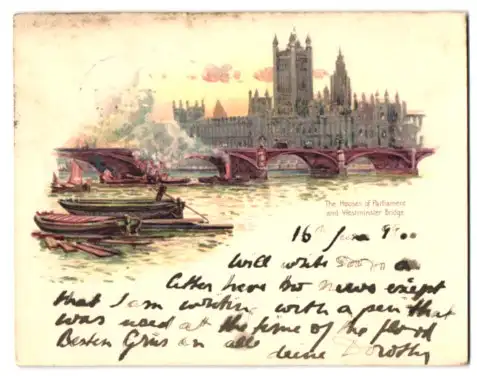 The Houses of Parliament
and Westminster Bridge.
16th June 99
Will write soon a
letter have no news except
that I am writing with a pen that
was used at the time of the flood
Besten Grüs an alle
deine Dorothy